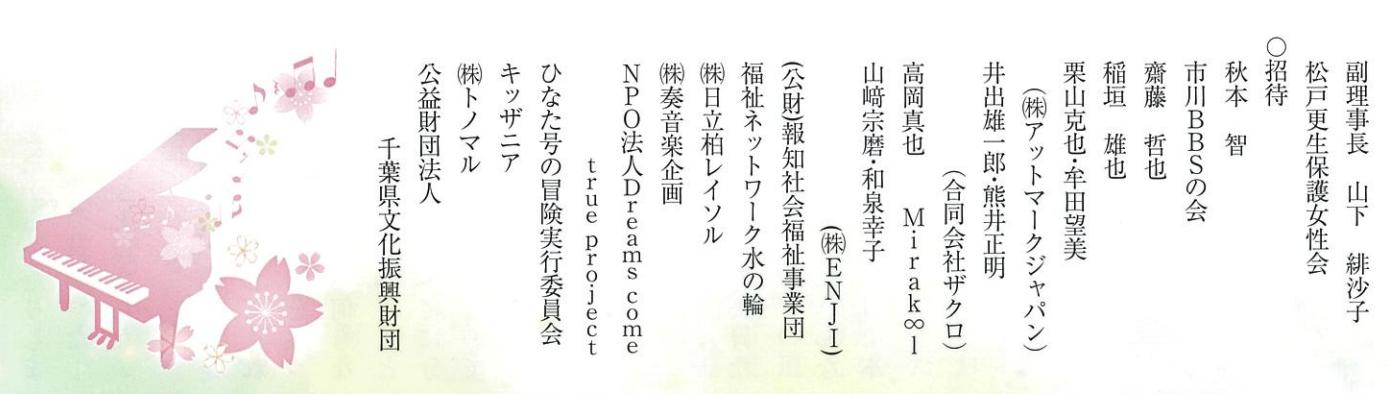 副理事長　山下　緋沙子
松戸更生保護女性会
○招待
秋本　智
市川BBSの会
齋藤　哲也
稲垣　雄也
栗山克也・牟田望美
(㈱アットマークジャパン)
井出雄一郎・熊井正明
(合同会社ザクロ)
高岡真也　Mirak∞l
山﨑宗磨・和泉幸子
(㈱ENJI)
(公財)報知社会福祉事業団
福祉ネットワーク水の輪
㈱日立柏レイソル
㈱奏音楽企画
NPO法人Dreams come
true project
ひなた号の冒険実行委員会
キッザニア
㈱トノマル
公益財団法人
千葉県文化振興財団